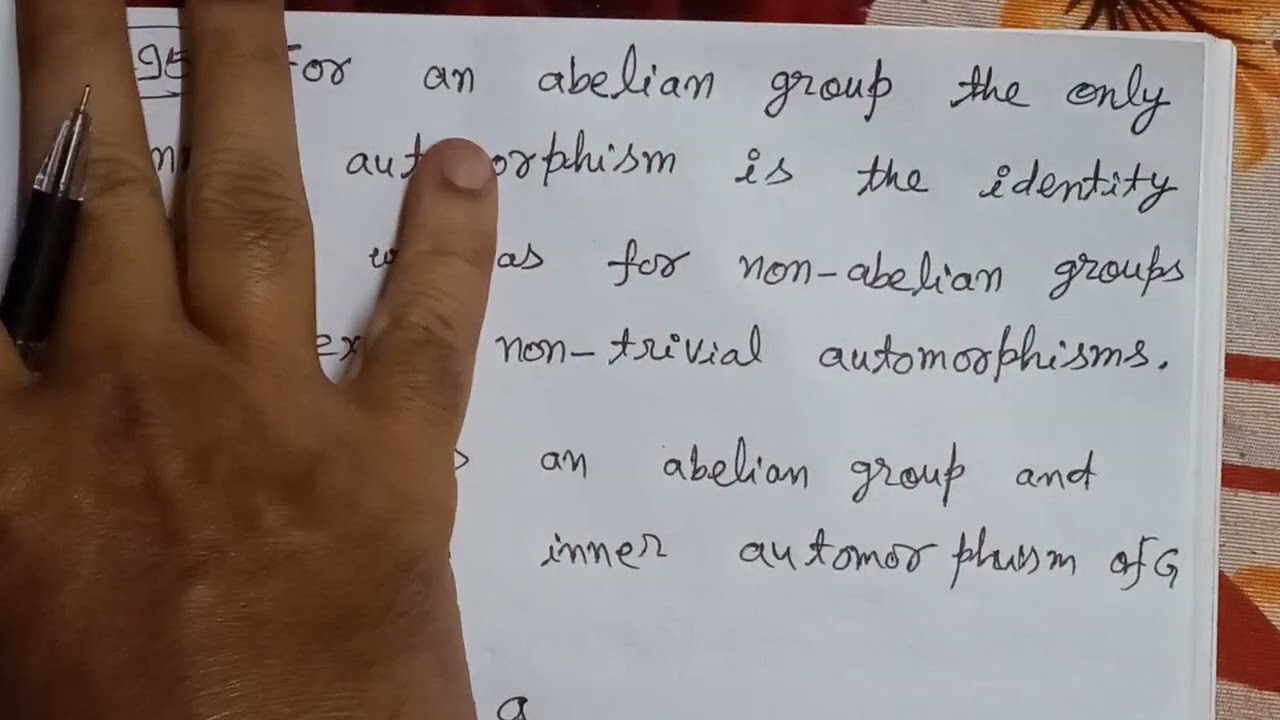 95 For an abelian group the only
automorphism is the identity
as for non-abelian groups
non-trivial automorphisms.
an abelian group and
inner automorphism of G
a